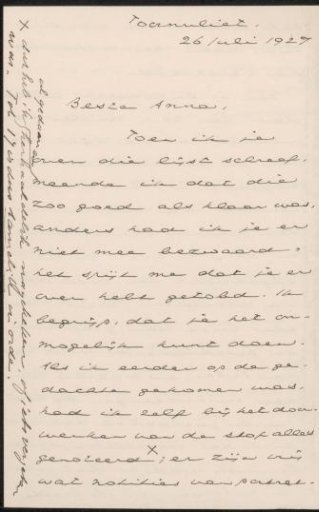 Toornvliet.
26 Juli 1927
Beste Anna,
Toen ik je
over die lijst schreef,
meende ik dat die
zoo goed als klaar was,
anders had ik je er
niet mee bezwaard.
Het spijt me dat je er
over hebt getobd. Ik
begrijp, dat je het on-
mogelijk kunt doen.
Als ik eerder op de ge-
dachte gekomen was,
had ik zelf bij het door-
werken van de stof alles
genoteerd ×; er zijn vrij
wat notities van portret-
× dus heb ik
of iets vergeten
was. Tot 17 is dus
in orde.